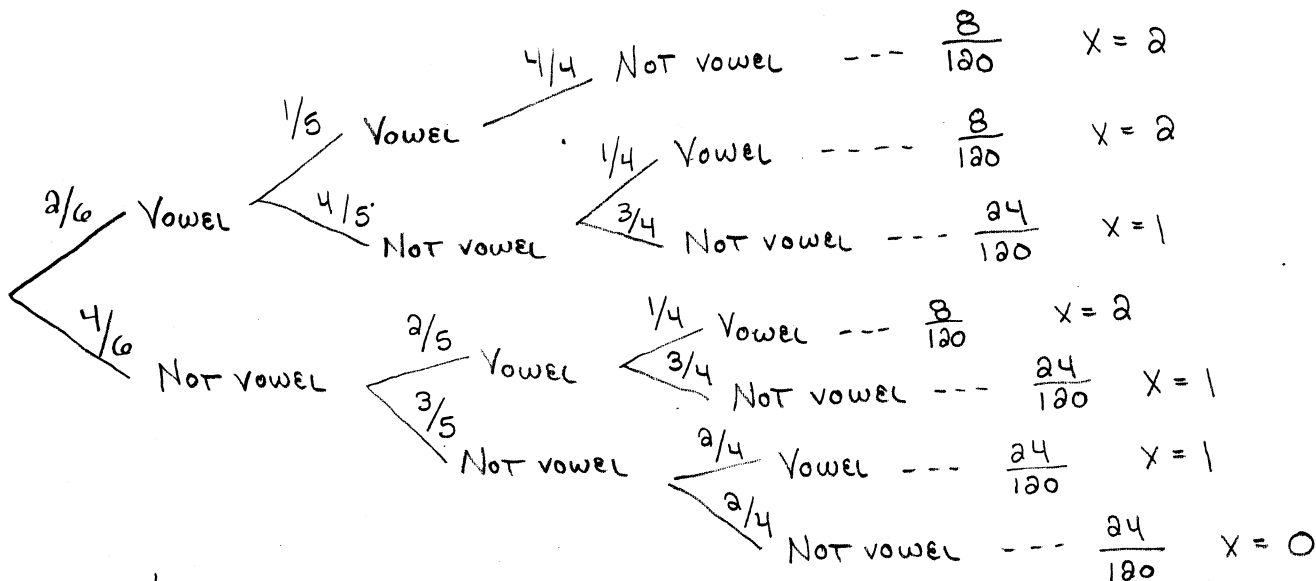 4/4 NOT VOWEL --- 8/120 X = 2
1/5 VOWEL
1/4 VOWEL ---- 8/120 X = 2
2/6 VOWEL
4/5 NOT VOWEL
3/4 NOT VOWEL --- 24/120 X = 1
1/4 VOWEL --- 8/120 X = 2
2/5 VOWEL
4/6 NOT VOWEL
3/4 NOT VOWEL --- 24/120 X = 1
3/5 NOT VOWEL
2/4 VOWEL --- 24/120 X = 1
2/4 NOT VOWEL --- 24/120 X = 0